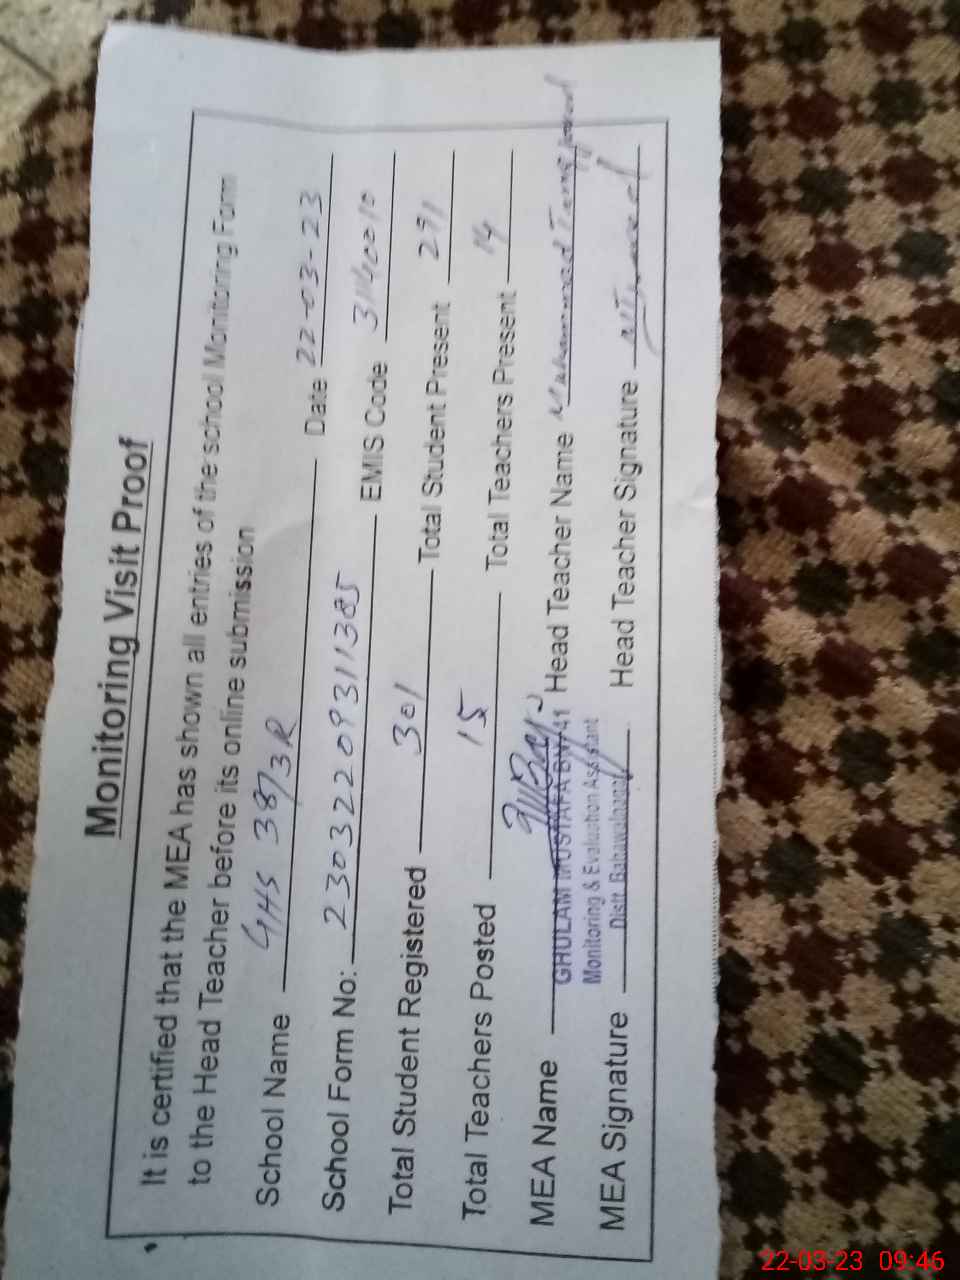 Monitoring Visit Proof
It is certified that the MEA has shown all entries of the school Monitoring Form
to the Head Teacher before its online submission
School Name GHS 38/3R Date 22-03-23
School Form No: 230322093111385 EMIS Code 31140010
Total Student Registered 301 Total Student Present 291
Total Teachers Posted 15 Total Teachers Present 14
MEA Name GHULAM MUSTAFA Head Teacher Name Muhammad
Monitoring & Evaluation Assistant
Distt. Bahawalnagar
MEA Signature Head Teacher Signature
22-03-23 09:46